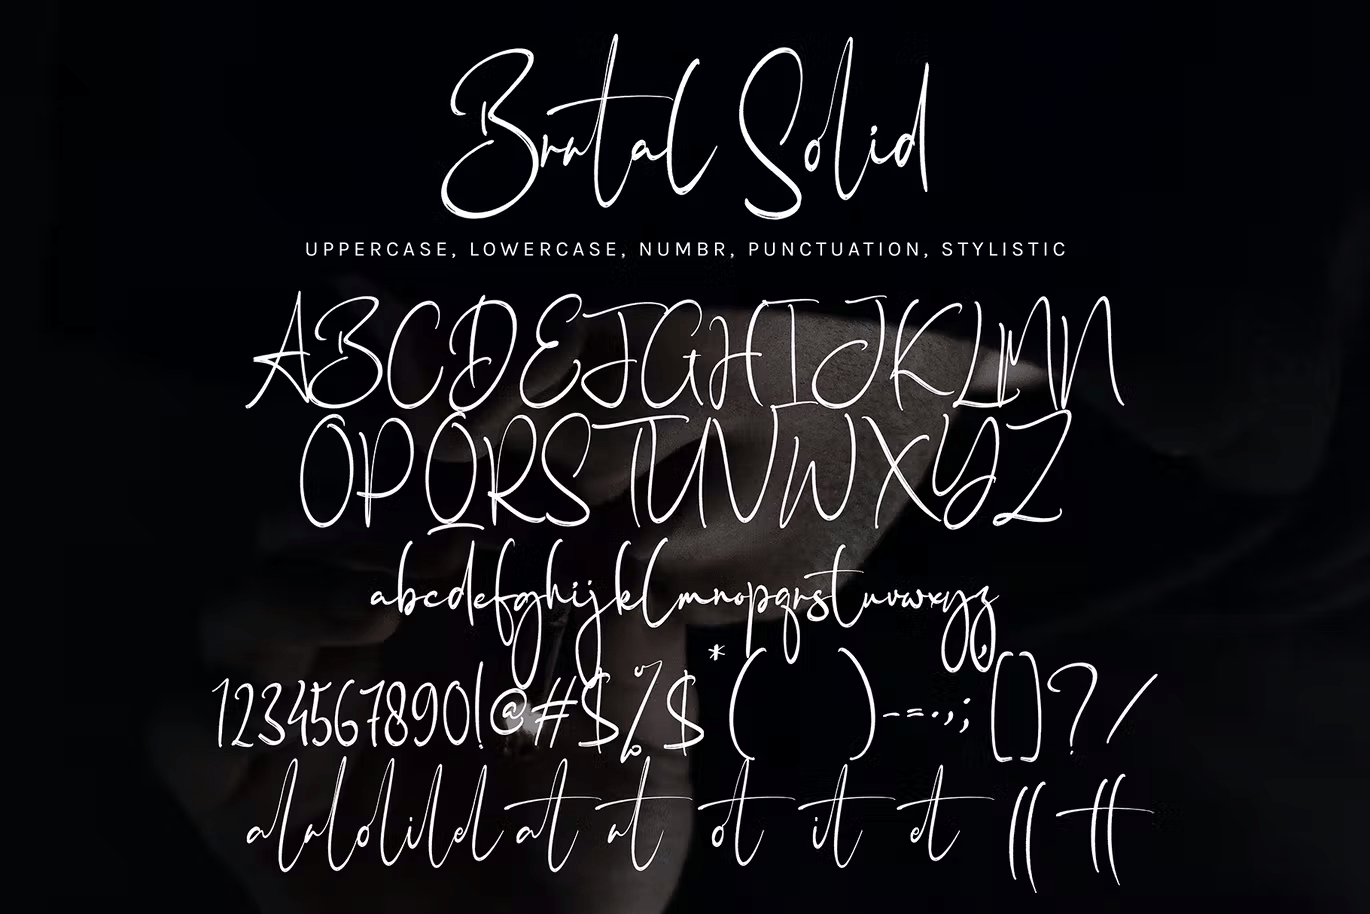 Brutal Solid
UPPERCASE, LOWERCASE, NUMBR, PUNCTUATION, STYLISTIC
ABCDEFGHIJKLMN
OPQRSTUVWXYZ
abcdefghijklmnopqrstuvwxyz
1234567890!@#$%$*()-=.,;[]?/
al ul ol il el at ut ot it et ll tt